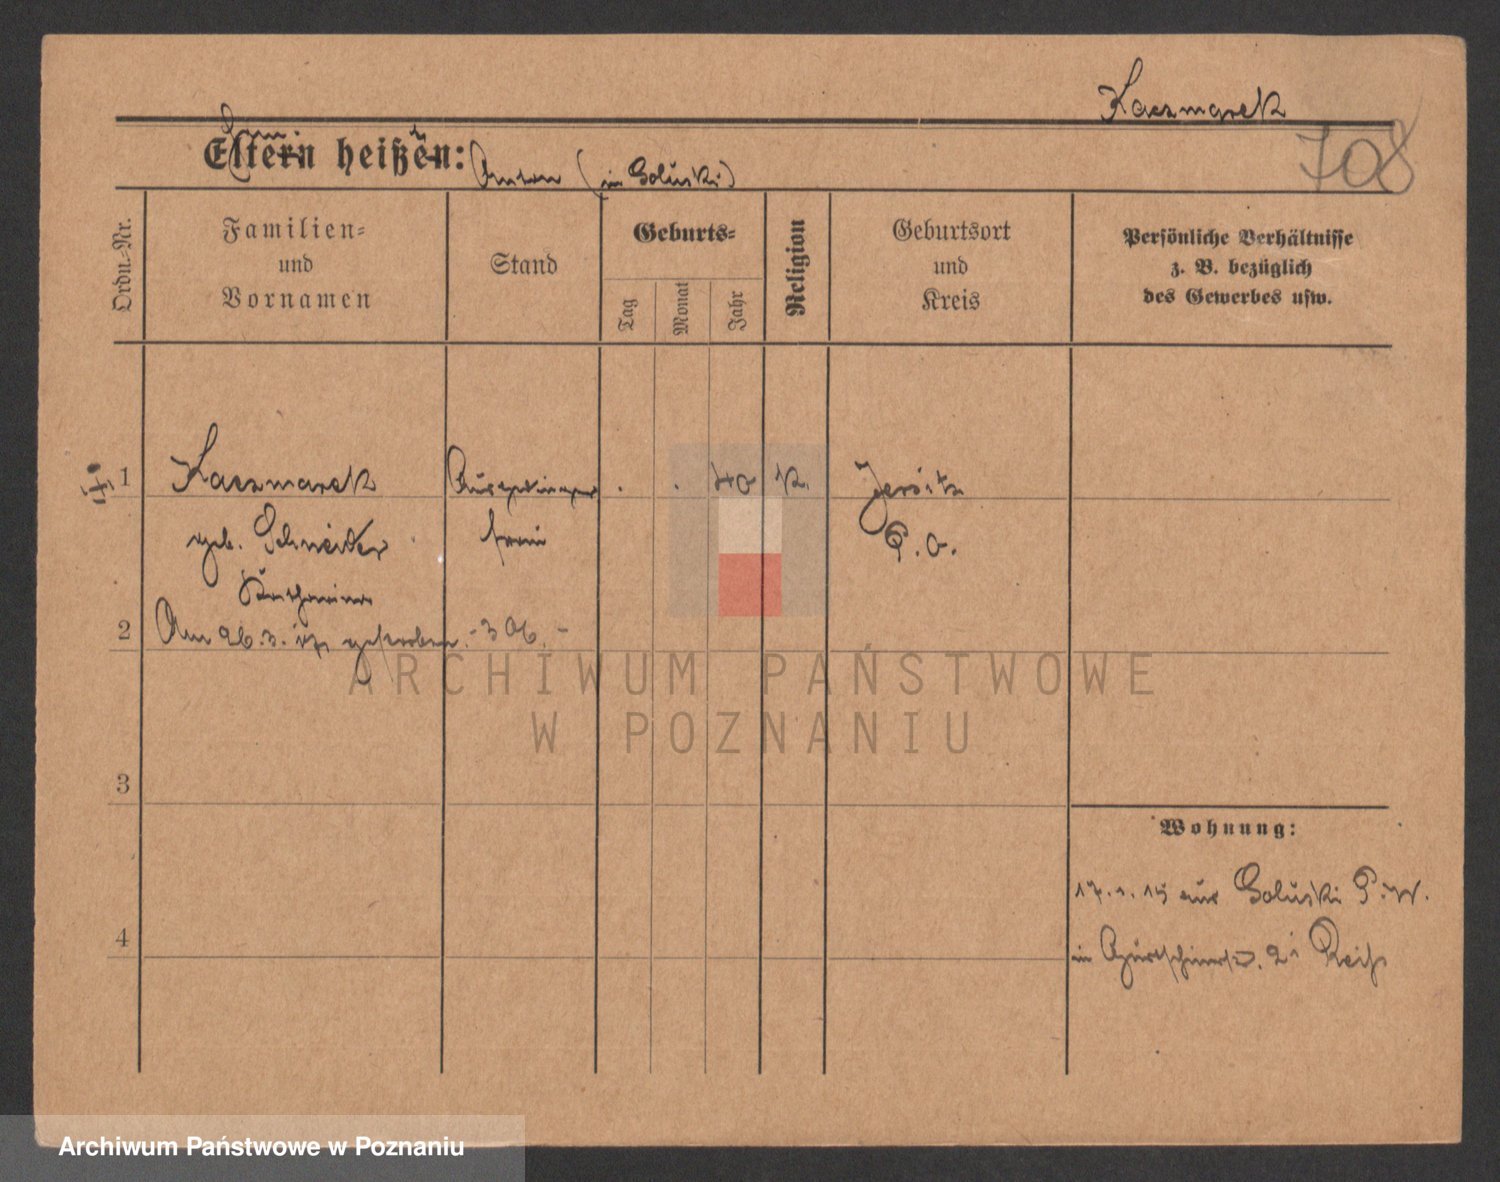 Kaczmarek
708
Eltern heißen:
Anton (in Goluski)
Ordn.-Nr.
Familien-
und
Vornamen
Stand
Geburts-
Tag
Monat
Jahr
Religion
Geburtsort
und
Kreis
Persönliche Verhältnisse
z. B. bezüglich
des Gewerbes usw.
1
Kaczmarek
. . 40 K. Jersitz
geb. Schneider
frau
P. O.
Katharina
2
Am 26.3. gestorben. - 306. -
ARCHIWUM PAŃSTWOWE
W POZNANIU
3
Wohnung:
17.1.15 aus Goluski P. W.
4
in 2 Reiß
Archiwum Państwowe w Poznaniu